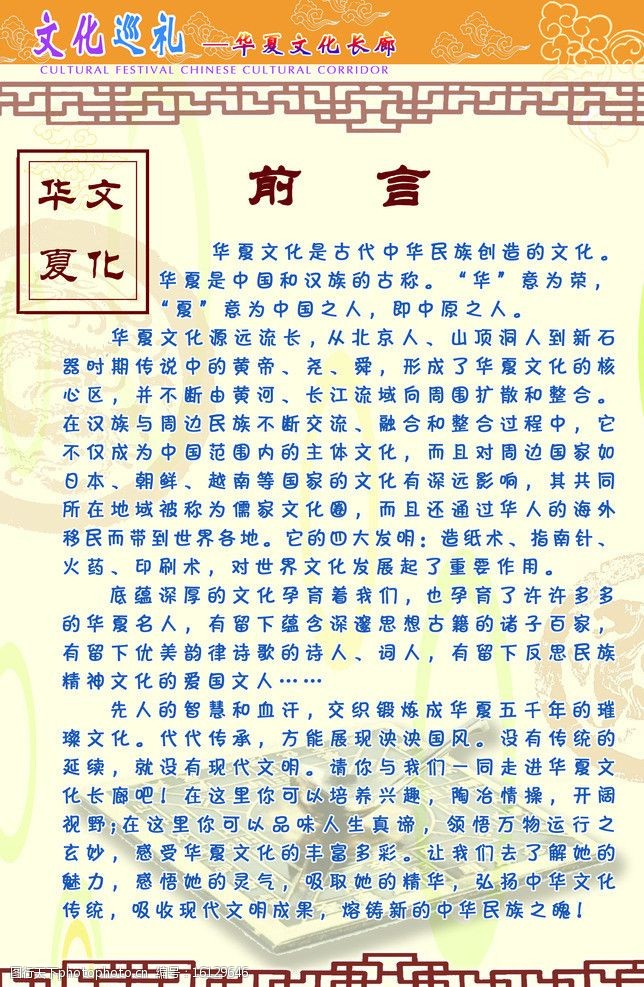 文化巡礼 —华夏文化长廊
CULTURAL FESTIVAL CHINESE CULTURAL CORRIDOR
华文
夏化
前言
华夏文化是古代中华民族创造的文化。
华夏是中国和汉族的古称。“华”意为荣，
“夏”意为中国之人，即中原之人。
华夏文化源远流长，从北京人、山顶洞人到新石
器时期传说中的黄帝、尧、舜，形成了华夏文化的核
心区，并不断由黄河、长江流域向周围扩散和整合。
在汉族与周边民族不断交流、融合和整合过程中，它
不仅成为中国范围内的主体文化，而且对周边国家如
日本、朝鲜、越南等国家的文化有深远影响，其共同
所在地域被称为儒家文化圈，而且还通过华人的海外
移民而带到世界各地。它的四大发明：造纸术、指南针、
火药、印刷术，对世界文化发展起了重要作用。
底蕴深厚的文化孕育着我们，也孕育了许许多多
的华夏名人，有留下蕴含深邃思想古籍的诸子百家，
有留下优美韵律诗歌的诗人、词人，有留下反思民族
精神文化的爱国文人……
先人的智慧和血汗，交织锻炼成华夏五千年的璀
璨文化。代代传承，方能展现泱泱国风。没有传统的
延续，就没有现代文明。请你与我们一同走进华夏文
化长廊吧！在这里你可以培养兴趣，陶冶情操，开阔
视野;在这里你可以品味人生真谛，领悟万物运行之
玄妙，感受华夏文化的丰富多彩。让我们去了解她的
魅力，感悟她的灵气，吸取她的精华，弘扬中华文化
传统，吸收现代文明成果，熔铸新的中华民族之魂！
图行天下 photophoto.cn 编号：16129646